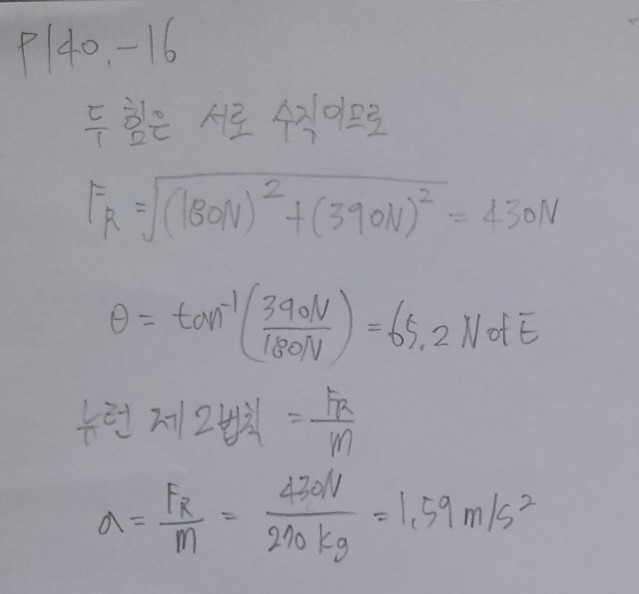 P140.-16
두 힘은 서로 수직이므로
F_R = √(180N)² + (390N)² = 430N
θ = tan⁻¹(390N/180N) = 65.2 N of E
뉴런 제2법칙 = F_R/m
a = F_R/m = 430N/270 kg = 1.59 m/s²